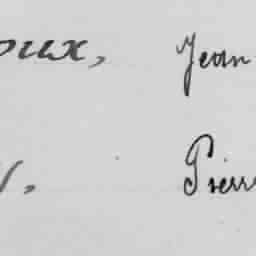 oux, Jean
Pierr